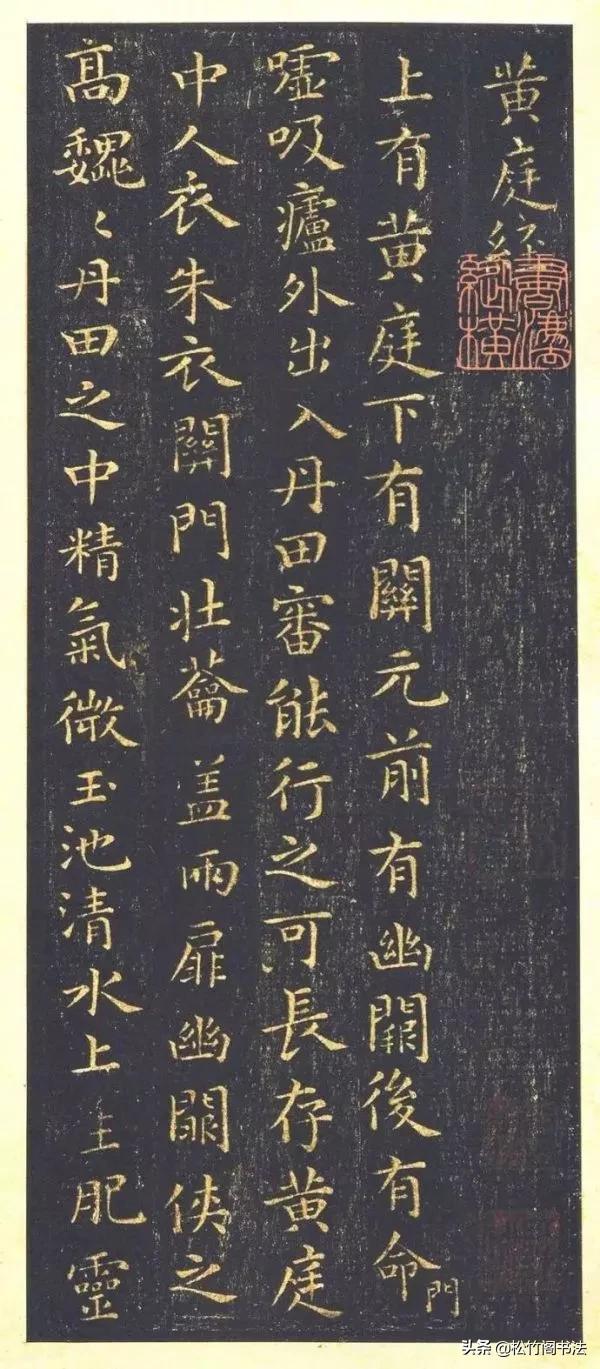 黄庭經
上有黄庭下有關元前有幽闕後有命門
嘘吸廬外出入丹田審能行之可長存黄庭
中人衣朱衣關門壯蘥盖兩扉幽闕侠之
高巍〻丹田之中精氣微玉池清水上生肥靈
头条 @松竹阁书法